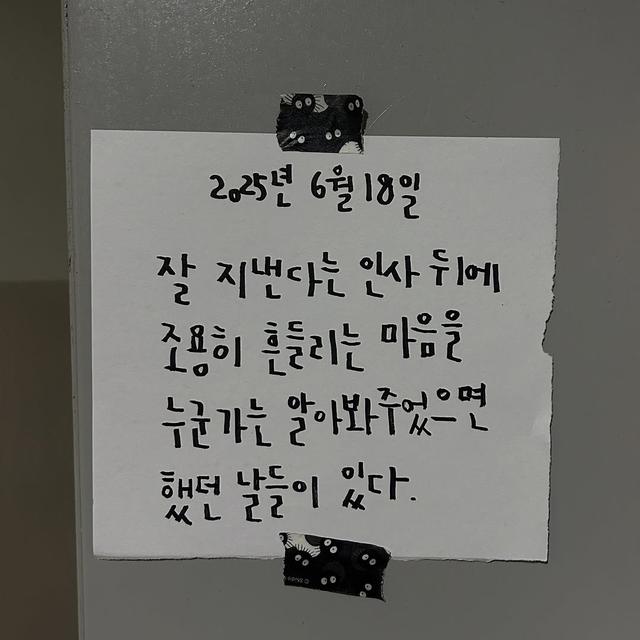 2025년 6월 18일
잘 지낸다는 인사 뒤에
조용히 흔들리는 마음을
누군가는 알아봐주었으면
했던 날들이 있다.